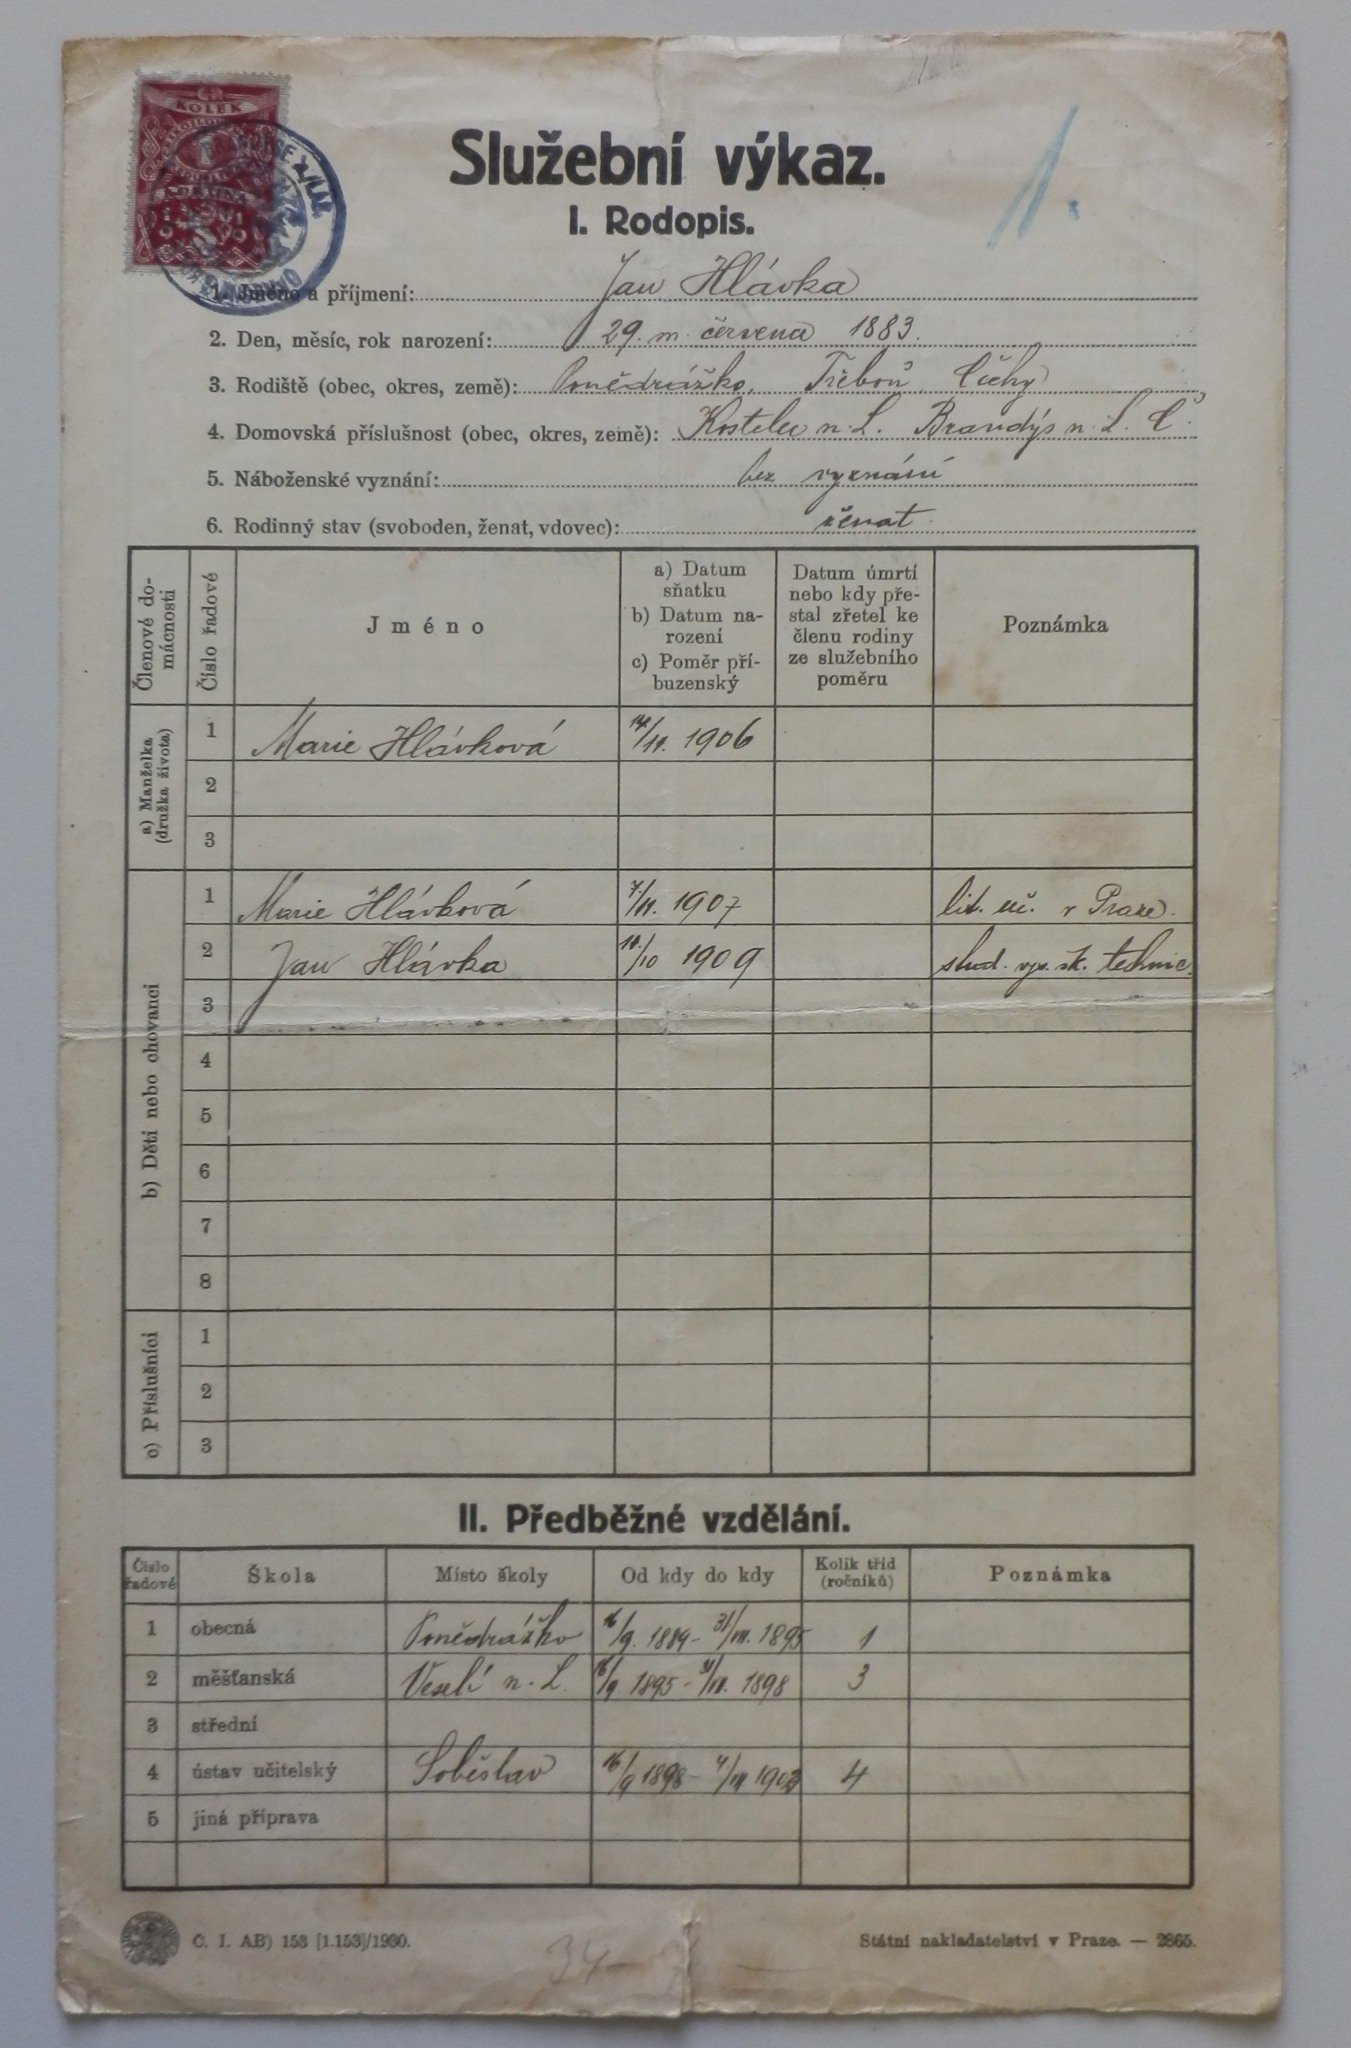 ČR
KOLEK
1
1.
Služební výkaz.
I. Rodopis.
1. Jméno a příjmení: Jan Hlávka
2. Den, měsíc, rok narození: 29. m. června 1883.
3. Rodiště (obec, okres, země): Ponědrážko, Třeboň, Čechy
4. Domovská příslušnost (obec, okres, země): Kostelec n. L. Brandýs n. L. Č.
5. Náboženské vyznání: bez vyznání
6. Rodinný stav (svoboden, ženat, vdovec): ženat.
Členové do-
mácnosti
Číslo řadové
Jméno
a) Datum
sňatku
b) Datum na-
rození
c) Poměr pří-
buzenský
Datum úmrtí
nebo kdy pře-
stal zřetel ke
členu rodiny
ze služebního
poměru
Poznámka
a) Manželka
(družka života)
1 Marie Hlávková 14/11. 1906
2
3
b) Děti nebo chovanci
1 Marie Hlávková 7/11. 1907 lit. uč. v Praze.
2 Jan Hlávka 10/10 1909 stud. vys. šk. technic.
3
4
5
6
7
8
c) Příslušníci
1
2
3
II. Předběžné vzdělání.
Číslo
řadové
Škola
Místo školy
Od kdy do kdy
Kolik tříd
(ročníků)
Poznámka
1 obecná Ponědrážko 16/9. 1889 - 31/VII. 1895 1
2 měšťanská Veselí n. L. 16/9. 1895 - 31/VII. 1898 3
3 střední
4 ústav učitelský Soběslav 16/9 1898 - 4/VII 1902 4
5 jiná příprava
Č. I. AB) 153 [1.153]/1930.
Státní nakladatelství v Praze. — 2865.
34-